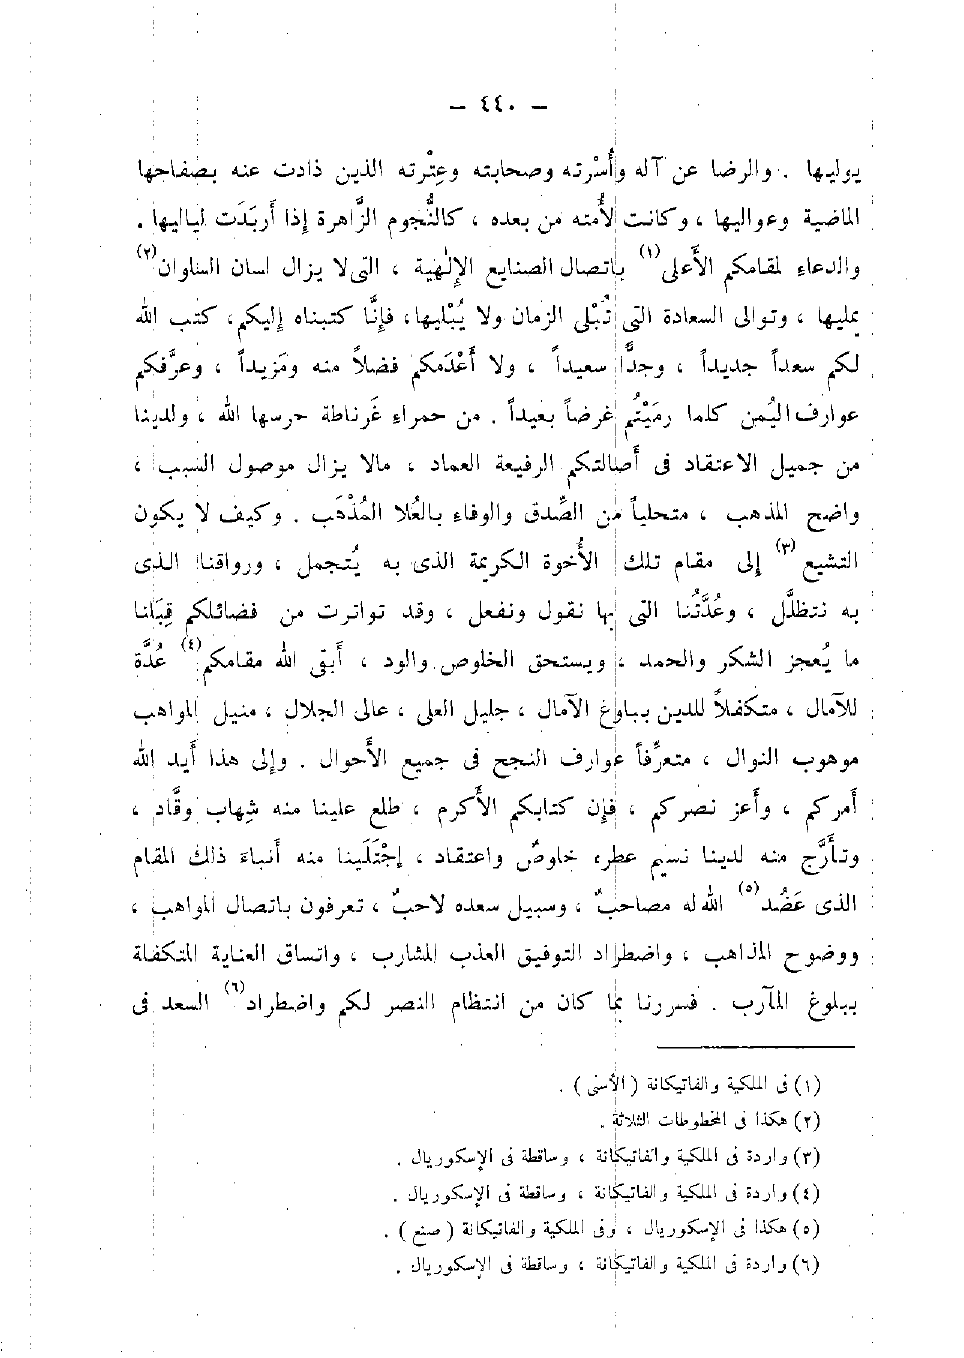 — ٤٤٠ —
يوليها . والرضا عن آله وأُسْرته وصحابته وعِتْرته الذين ذادت عنه بصفاحها
الماضية وعواليها ، وكانت لأُمته من بعده ، كالنُّجوم الزَّاهرة إذا أَربَدَت لياليها .
والدعاء لمقامكم الأعلى(١) باتصال الصنايع الإلٰهية ، التى لا يزال لسان السلوان(٢)
يمليها ، وتوالى السعادة التى تُبْلى الزمان ولا يُبْليها، فإنَّا كتبناه إليكم، كتب الله
لكم سعداً جديداً ، وجدًّا سعيداً ، ولا أَعْدَمكم فضلاً منه ومَزيداً ، وعرَّفكم
عوارف اليُمن كلما رمَيْتُم غرضاً بعيداً . من حمراء غَرناطة حرسها الله ، ولدينا
من جميل الاعتقاد فى أَصالتكم الرفيعة العماد ، مالا يزال موصول السبب ،
واضح المذهب ، متحلياً من الصِّدق والوفاء بالعُلا المُذْهَب . وكيف لا يكون
التشيع(٣) إلى مقام تلك الأُخوة الكريمة الذى به يُتجمل ، ورواقنا الذى
به نتظلَّل ، وعُدَّتُنا التى بها نقول ونفعل ، وقد تواترت من فضائلكم قِبَلنا
ما يُعجز الشكر والحمد ، ويستحق الخلوص والود ، أَبقى الله مقامكم(٤) عُدَّة
للآمال ، متكفلاً للدين ببلوغ الآمال ، جليل العلى ، عالى الجلال ، منيل المواهب
موهوب النوال ، متعرِّفاً عوارف النجح فى جميع الأَحوال . وإلى هذا أَيد الله
أَمركم ، وأَعز نصركم ، فإن كتابكم الأَكرم ، طلع علينا منه شِهاب وقَّاد ،
وتأَرَّج منه لدينا نسيم عطره خلوصٌ واعتقاد ، إجْتَلَينا منه أَنباءَ ذلك المقام
الذى عَضُد(٥) الله له مصاحبٌ ، وسبيل سعده لاحبٌ ، تعرفون باتصال المواهب ،
ووضوح المذاهب ، واضطراد التوفيق العذب المشارب ، واتساق العناية المتكفلة
ببلوغ المآرب . فسررنا بما كان من انتظام النصر لكم واضطراد(٦) السعد فى
(١) فى الملكية والفاتيكانة ( الأسنى ) .
(٢) هكذا فى المخطوطات الثلاثة .
(٣) واردة فى الملكية والفاتيكانة ، وساقطة فى الإسكوريال .
(٤) واردة فى الملكية والفاتيكانة ، وساقطة فى الإسكوريال .
(٥) هكذا فى الإسكوريال ، وفى الملكية والفاتيكانة ( صنع ) .
(٦) واردة فى الملكية والفاتيكانة ، وساقطة فى الإسكوريال .